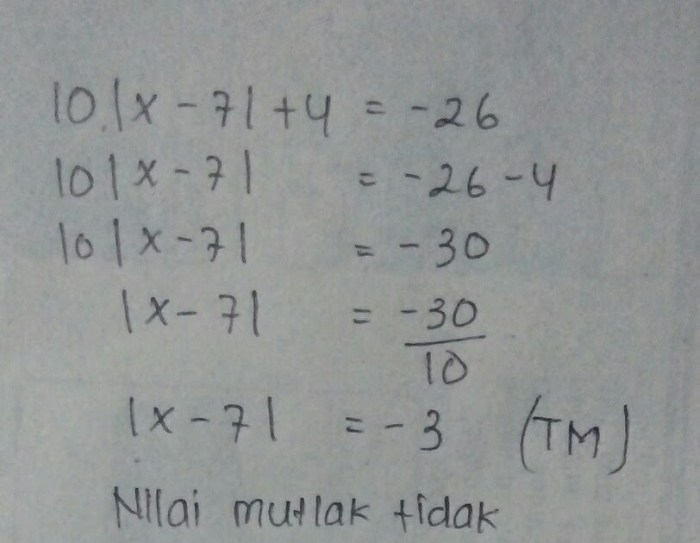 10|x - 7| + 4 = -26
10|x - 7| = -26 - 4
10|x - 7| = -30
|x - 7| = -30/10
|x - 7| = -3 (TM)
Nilai mutlak tidak